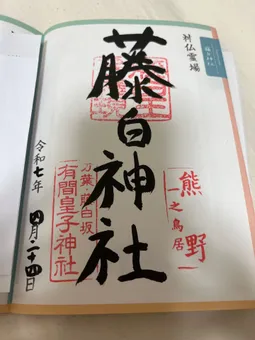 神仏霊場
藤白神社
熊野
一之鳥居
万葉・藤白坂
有間皇子神社
令和七年
四月二十四日